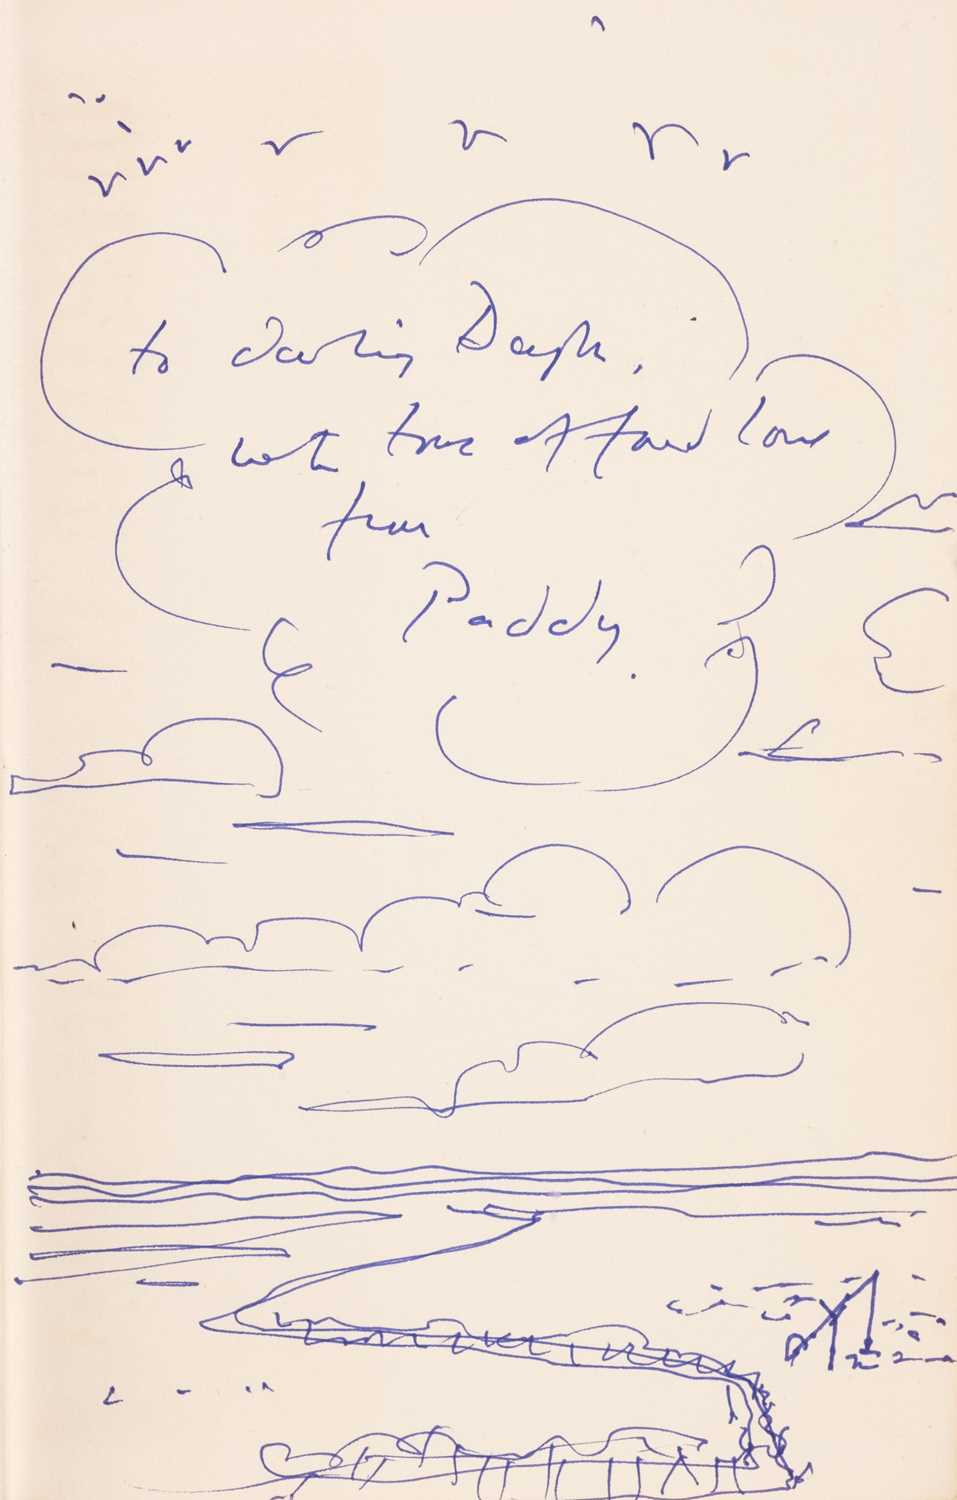 to darling Daph,
with tons of fond love
from
Paddy.